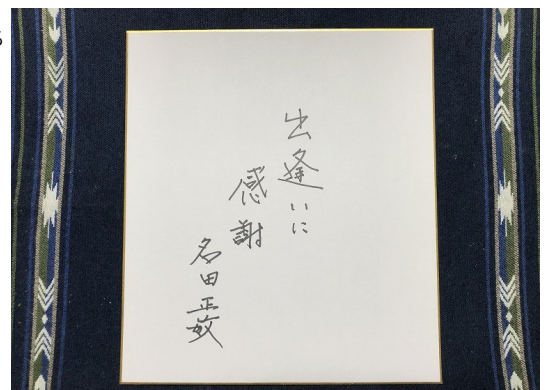 出逢いに
感謝
名田正敏